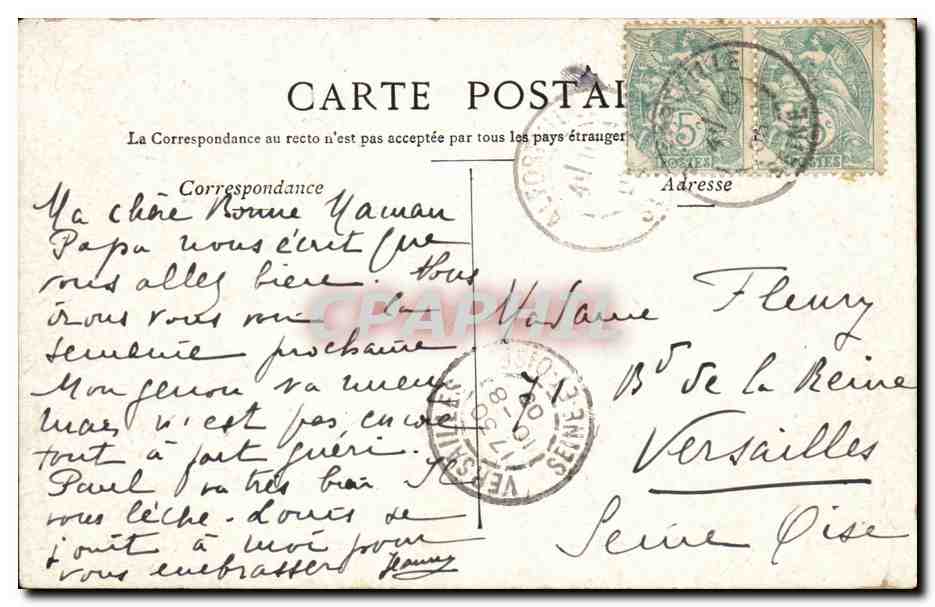 CARTE POSTAL
La Correspondance au recto n'est pas acceptée par tous les pays étranger
Correspondance
Adresse
Ma chère Bonne Maman
Papa nous écrit que
vous allez bien. Nous
irons vous voir la
semaine prochaine
Mon genou va mieux
mais n'est pas encore
tout à fait guéri.
Paul va très bien Il
vous lèche. Louis se
joint à moi pour
vous embrasser Jeanne
Madame Fleury
71 Bd de la Reine
Versailles
Seine Oise
5c
POSTES
POSTES
VERSAILLES
SEINE-ET-OISE
CPAPHIL